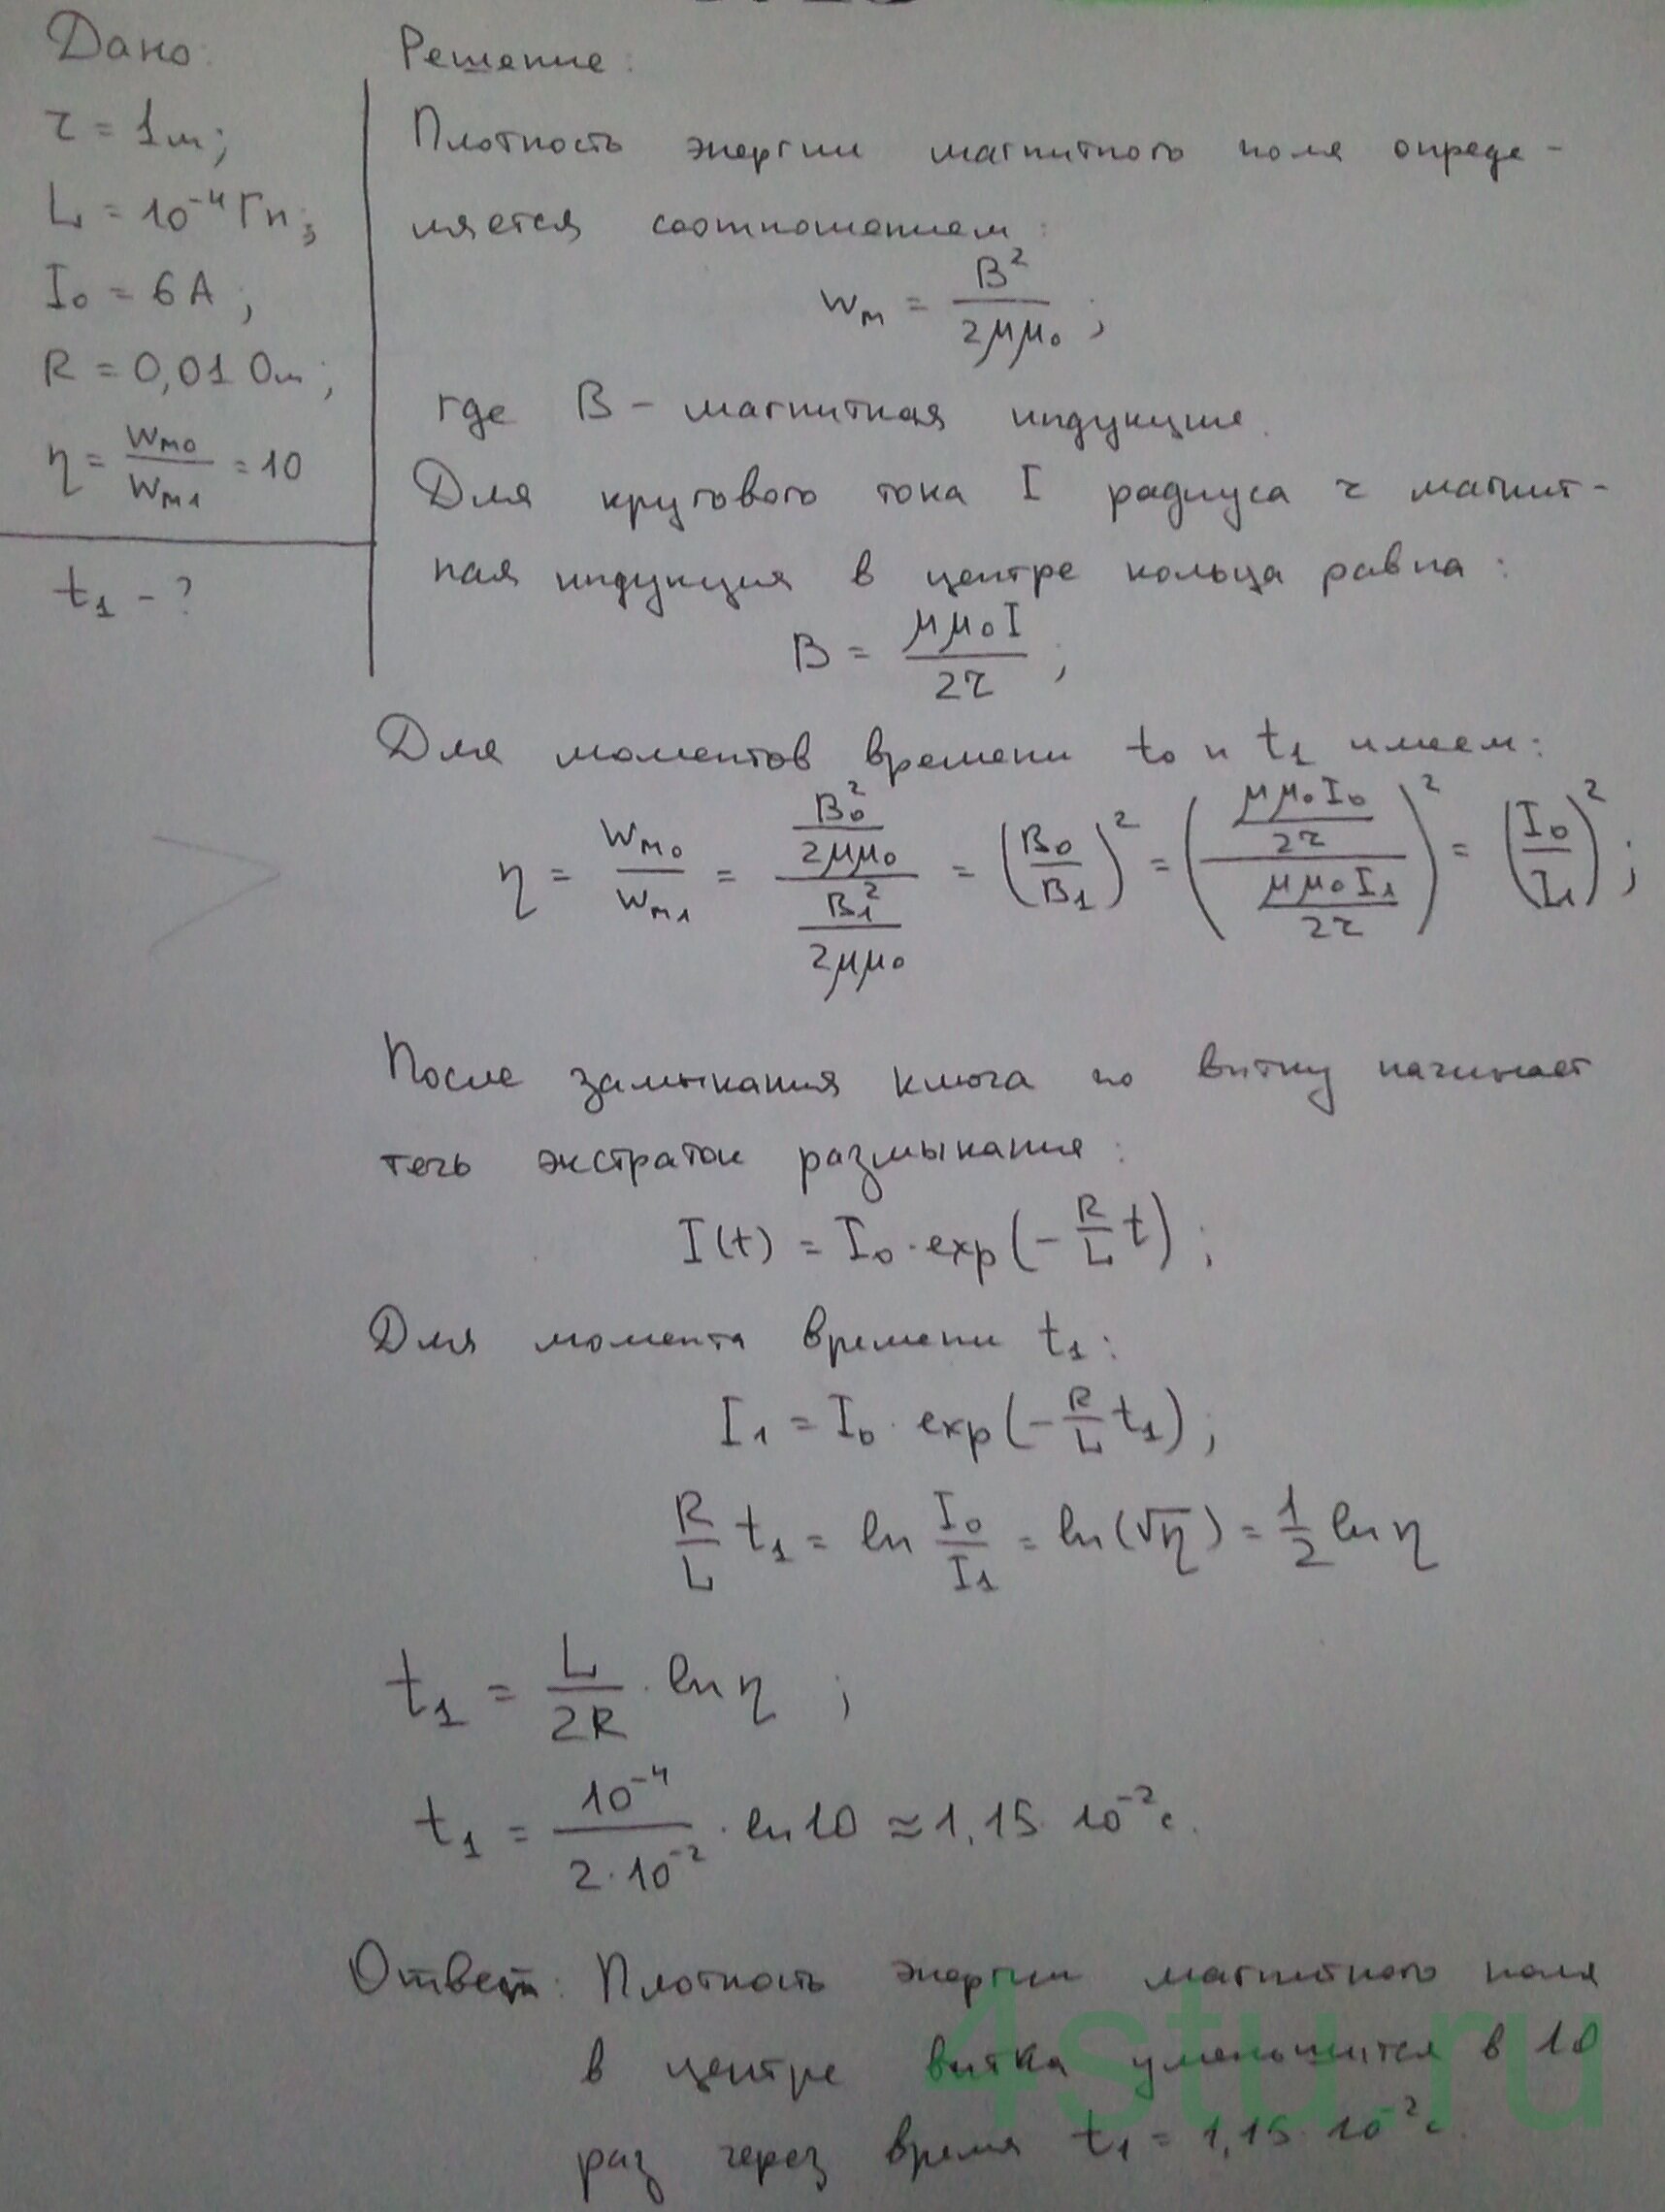 Дано:
τ = 1м;
L = 10⁻⁴ Гн;
I₀ = 6 А;
R = 0,01 Ом;
η = Wм₀/Wм₁ = 10
t₁ - ?
Решение:
Плотность энергии магнитного поля опреде-
ляется соотношением:
Wм = B²/2μμ₀;
где B – магнитная индукция.
Для кругового тока I радиуса τ магнит-
ная индукция в центре кольца равна:
B = μμ₀I/2τ;
Для моментов времени t₀ и t₁ имеем:
η = Wм₀/Wм₁ = (B₀²/2μμ₀)/(B₁²/2μμ₀) = (B₀/B₁)² = ((μμ₀I₀/2τ)/(μμ₀I₁/2τ))² = (I₀/I₁)²;
После замыкания ключа по витку начинает
течь экстраток размыкания:
I(t) = I₀·exp(-R/L t);
Для момента времени t₁:
I₁ = I₀·exp(-R/L t₁);
R/L t₁ = ln I₀/I₁ = ln(√η) = 1/2 ln η
t₁ = L/2R · ln η;
t₁ = 10⁻⁴/2·10⁻² · ln 10 ≈ 1,15·10⁻² с.
Ответ: Плотность энергии магнитного поля
в центре витка уменьшится в 10
раз через время t₁ = 1,15·10⁻² с.
4stu.ru